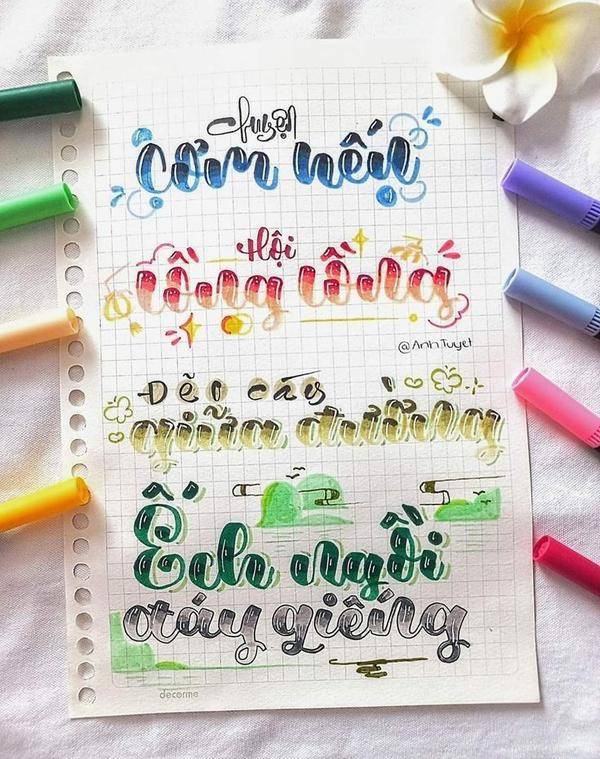 chuyện
Cơm nếp
Hội
lồng lồng
@AnhTuyet
Đẽo cày
giữa đường
Ếch ngồi
đáy giếng
decorme